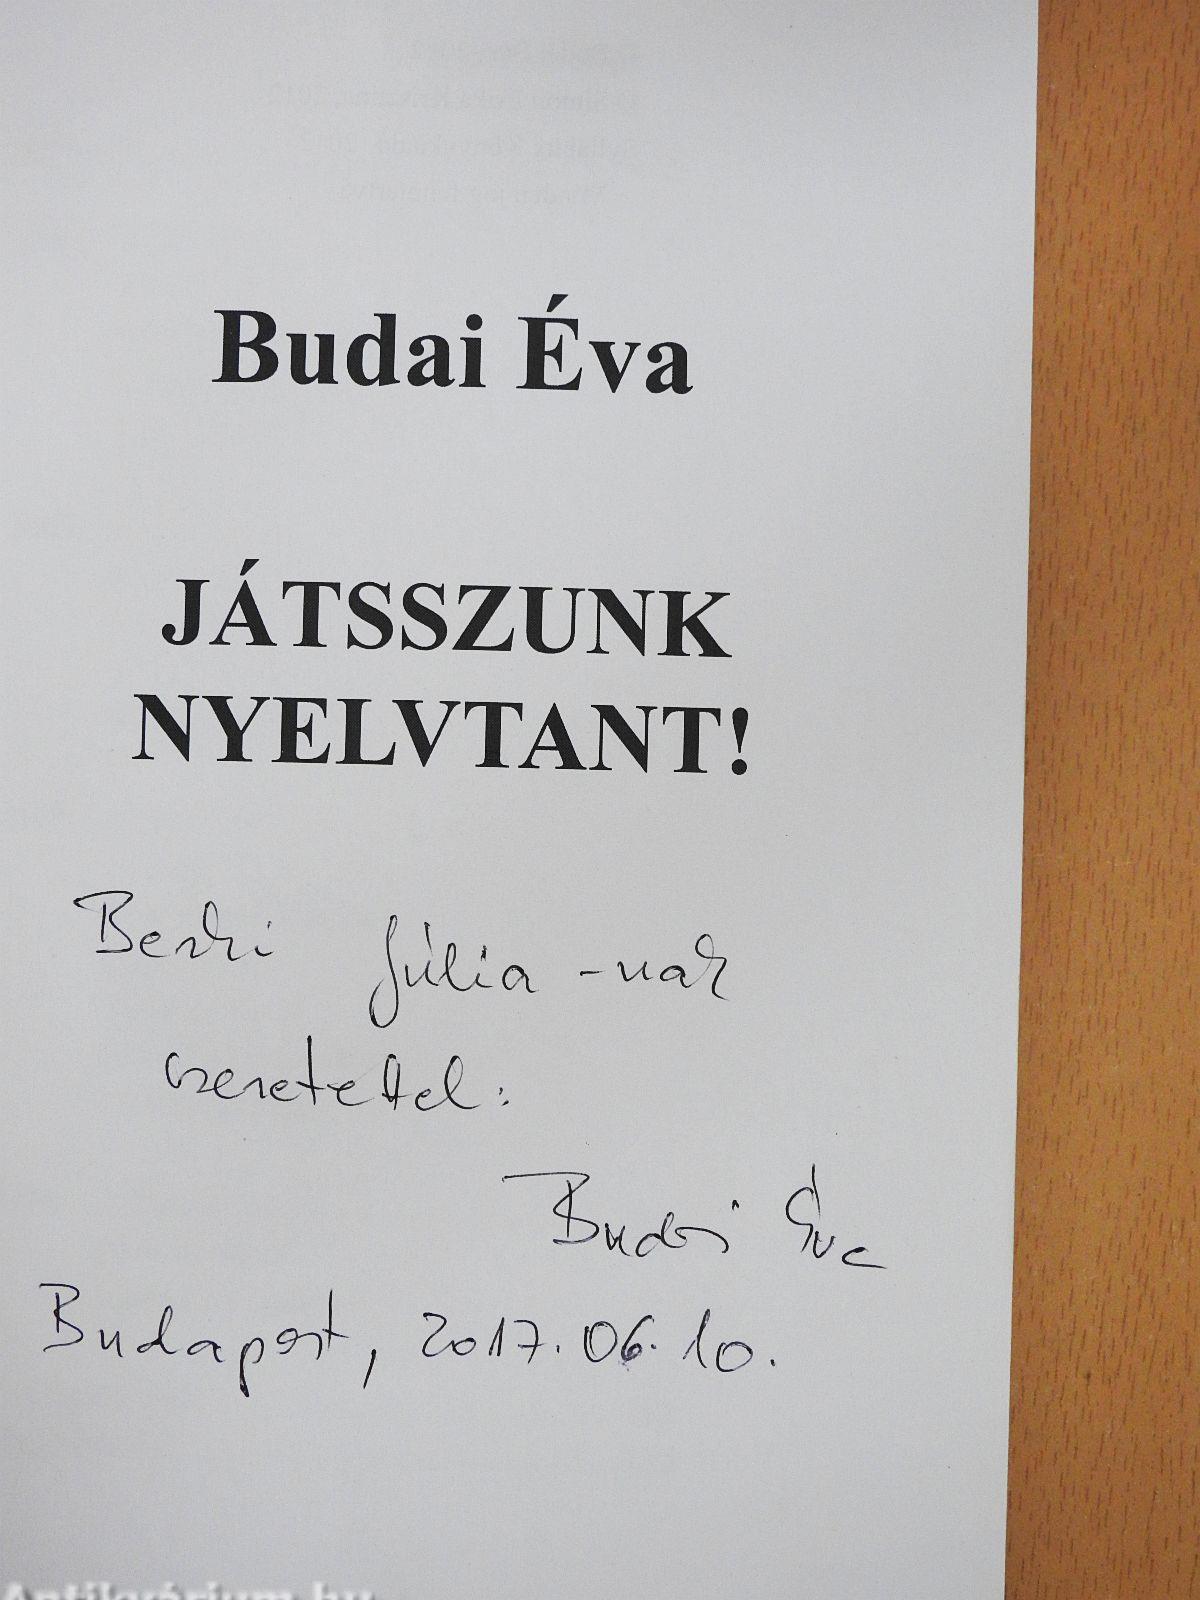 Budai Éva
JÁTSSZUNK
NYELVTANT!
Júlia -nak
szeretettel:
Budai Éva
Budapest, 2017.06.10.
Antikvárium.hu